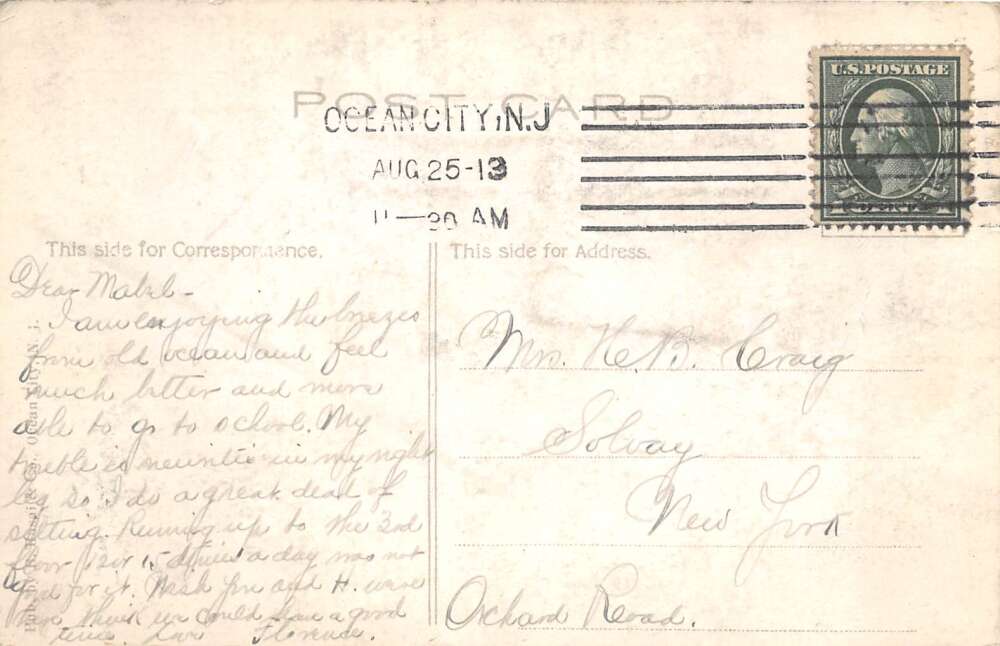 POST CARD
U.S.POSTAGE
OCEAN CITY, N.J
AUG 25-13
11—30 AM
This side for Correspondence.
Dear Mabel-
I am enjoying the breezes
from old ocean and feel
much better and more
able to go to school. My
trouble is neuritis in my right
leg so I do a great deal of
sitting. Running up to the 3rd
floor 12 or 15 times a day was not
good for it. Wish you and H. were
here think we could have a good
time. Florence.
This side for Address.
Mrs. H. B. Craig
Solvay
New York
Orchard Road.
Ocean City, N. J.